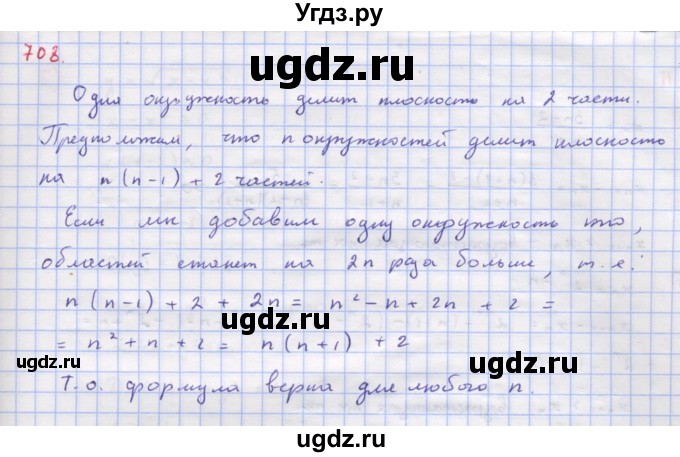 Угдз.ру
708.
ugdz.ru
Одна окружность делит плоскость на 2 части.
Предположим, что n окружностей делит плоскость
на n(n-1)+2 частей.
ugdz.ru
Если мы добавим одну окружность то,
областей станет на 2n раза больше, т.е:
n(n-1)+2+2n = n²-n+2n+2 =
ugdz.ru
= n²+n+2 = n(n+1)+2
ugdz.ru
ugdz.ru
Т.о. формула верна для любого n.
ugdz.ru